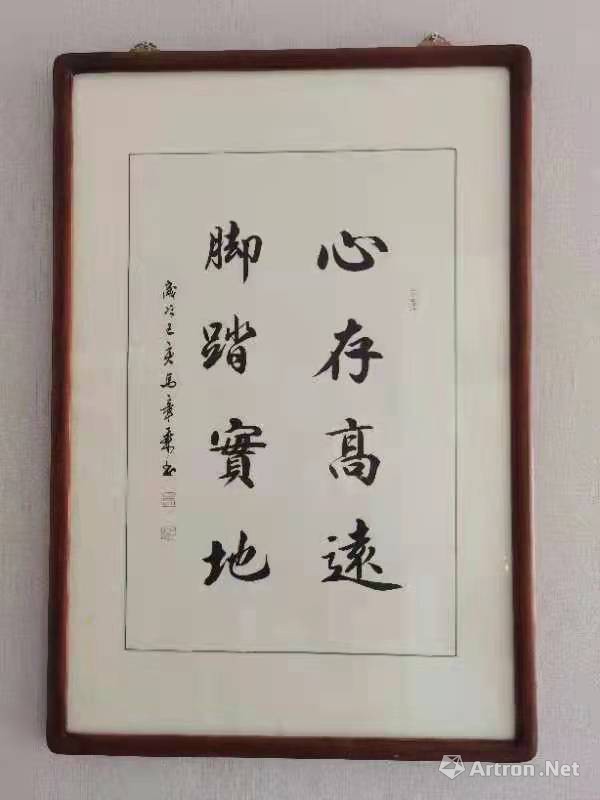 心存高遠
脚踏實地
歲次己亥馬章乘书
Artron.Net